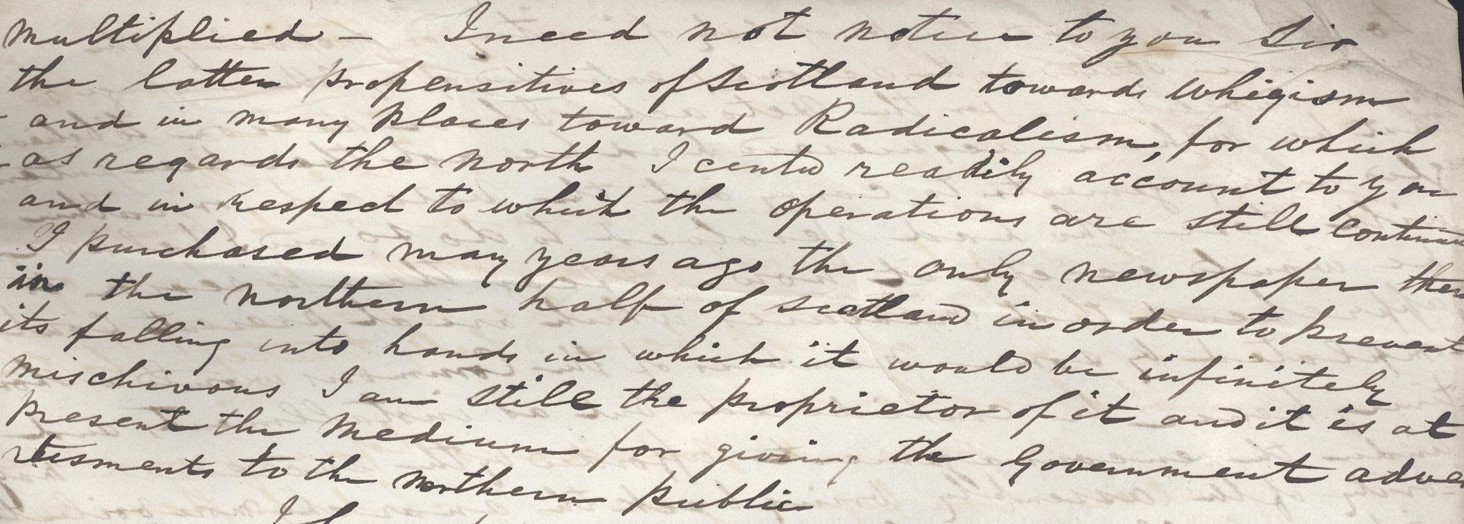 multiplied – I need not notice to you Sir
the latter propensitives of Scotland towards whigism
and in many places toward Radicalism, for which
as regards the north I readily account to you
and in respect to which the operations are still
I purchased many years ago the only newspaper then
in the northern half of scotland in order to prevent
its falling into hands in which it would be infinitely
mischivous I am still the proprietor of it and it is at
present the medium for giving the Government adve
rtisments to the northern public